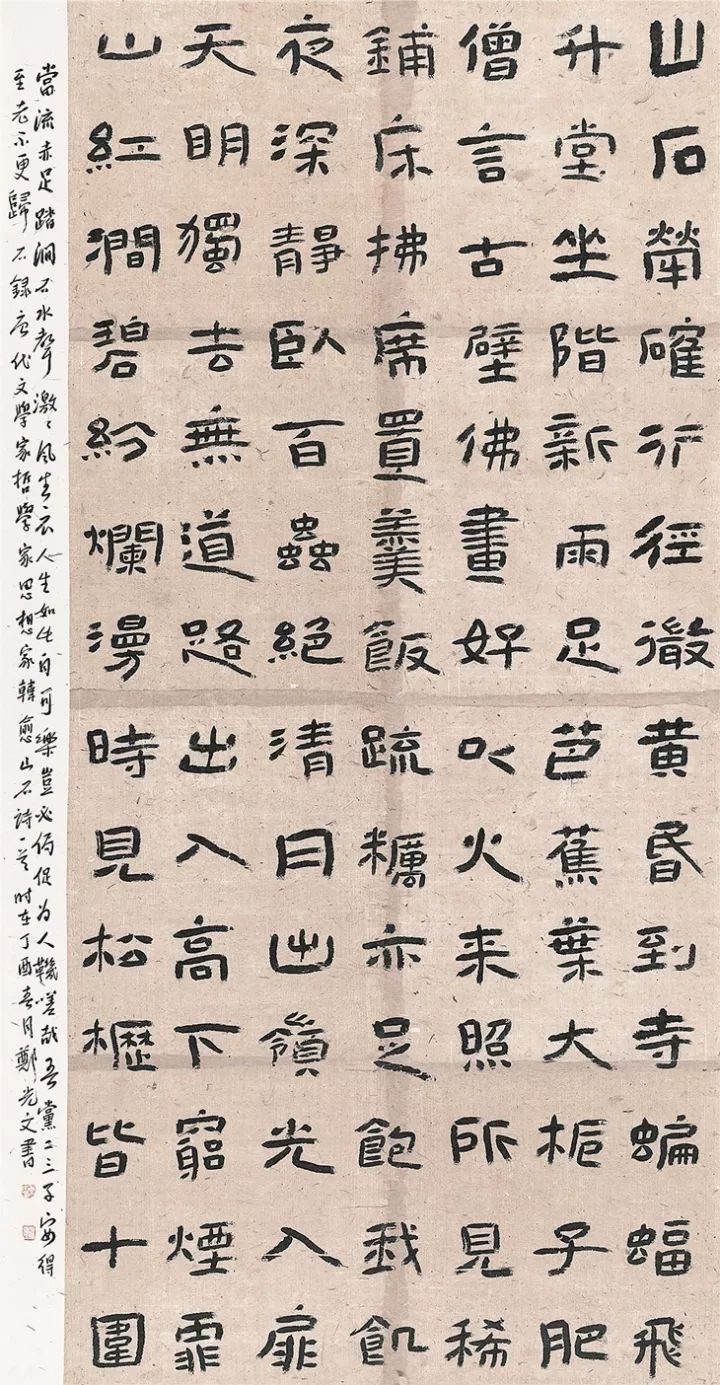 山石犖确行徑微黄昏到寺蝙蝠飛
升堂坐階新雨足芭蕉葉大栀子肥
僧言古壁佛畫好以火来照所見稀
鋪床拂席置羹飯疏糲亦足飽我飢
夜深靜臥百蟲絕清月出嶺光入扉
天明獨去無道路出入高下窮煙霏
山紅澗碧紛爛漫時見松櫪皆十圍
當流赤足踏澗石水聲激〻風生衣人生如此自可樂豈必侷促为人鞿嗟哉吾黨二三子安得
至老不更歸 石録唐代文學家哲學家思想家韓愈山石詩一首时在丁酉春月鄭光文書